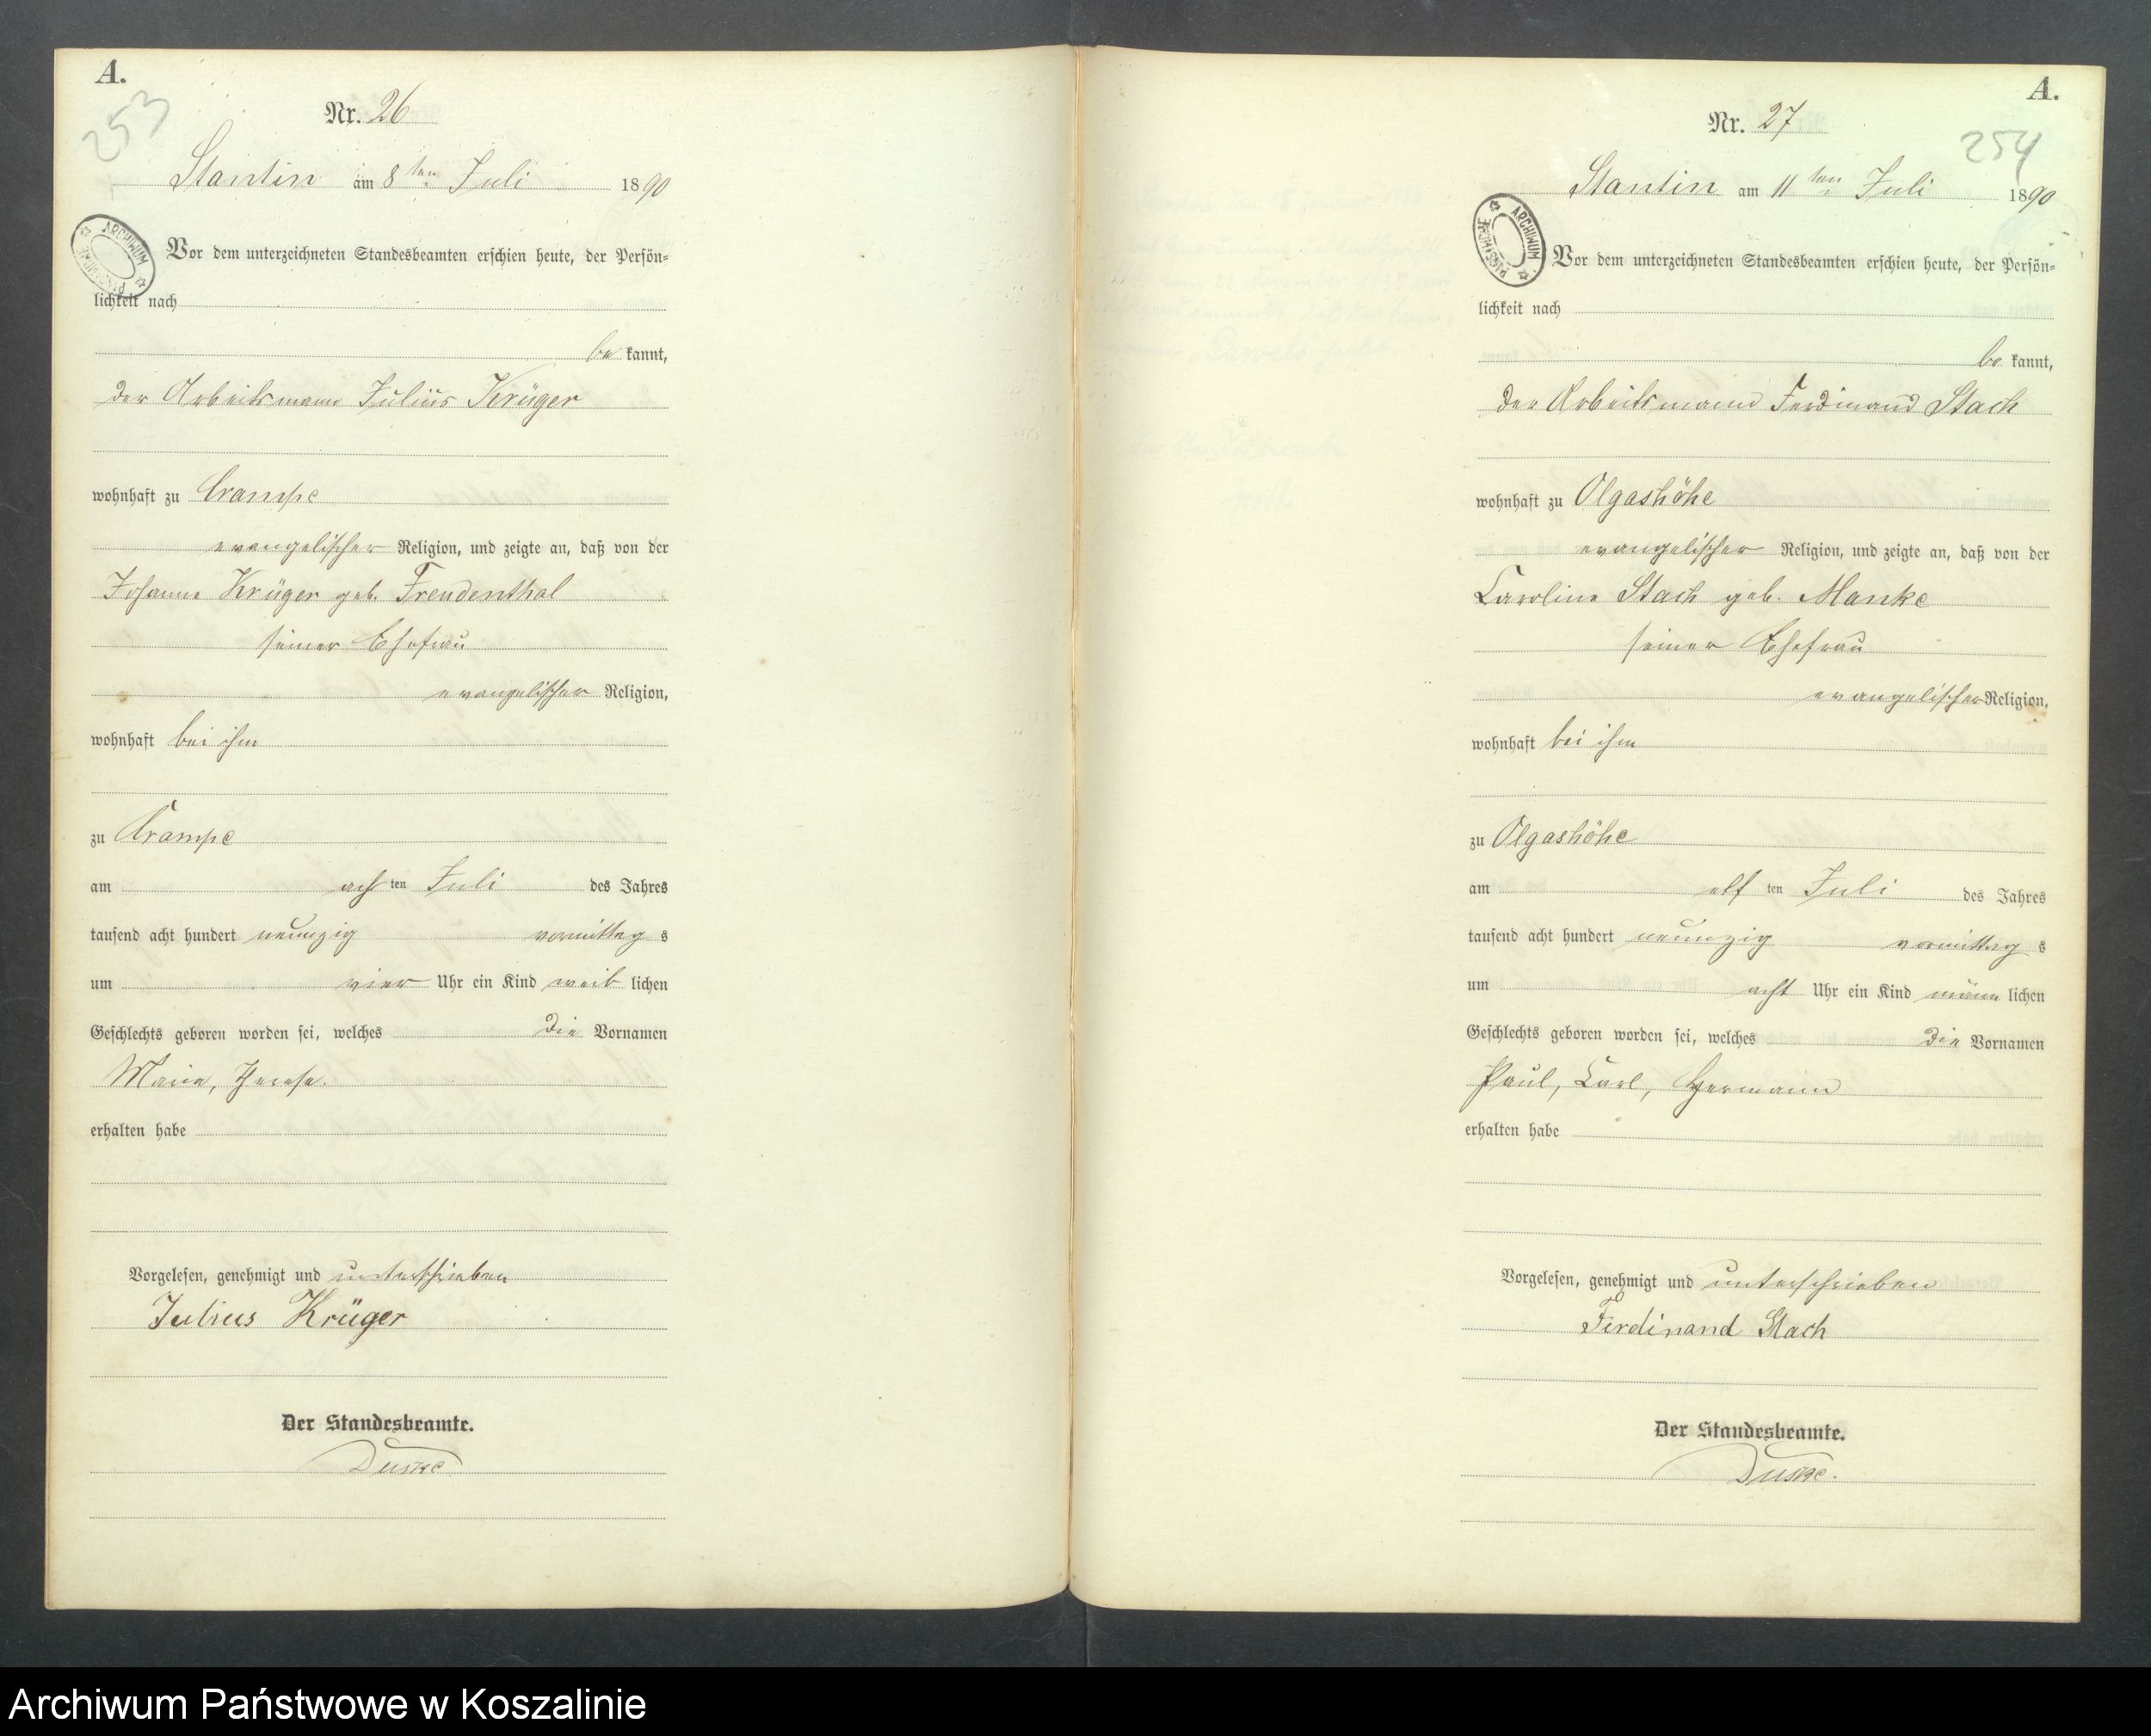 A.
253
Nr. 26
Stantin am 8ten Juli 1890
ARCHIWUM
Vor dem unterzeichneten Standesbeamten erschien heute, der Persön=
lichkeit nach
be kannt,
der Arbeitsmann Julius Krüger
wohnhaft zu Crampe
evangelischer Religion, und zeigte an, daß von der
Johanne Krüger geb. Freudenthal
seiner Ehefrau
evangelischer Religion,
wohnhaft bei ihm
zu Crampe
am ach ten Juli des Jahres
tausend acht hundert neunzig vormittag s
um vier Uhr ein Kind weib lichen
Geschlechts geboren worden sei, welches die Vornamen
Marie, Therese.
erhalten habe
Vorgelesen, genehmigt und unterschrieben
Julius Krüger
Der Standesbeamte.
Duske
A.
254
Nr. 27
Stantin am 11ten Juli 1890
ARCHIWUM
Vor dem unterzeichneten Standesbeamten erschien heute, der Persön=
lichkeit nach
be kannt,
der Arbeitsmann Ferdinand Stach
wohnhaft zu Olgashöhe
evangelischer Religion, und zeigte an, daß von der
Caroline Stach geb. Manke
seiner Ehefrau
evangelischer Religion,
wohnhaft bei ihm
zu Olgashöhe
am elf ten Juli des Jahres
tausend acht hundert neunzig vormittag s
um acht Uhr ein Kind männ lichen
Geschlechts geboren worden sei, welches die Vornamen
Paul, Carl, Hermann
erhalten habe
Vorgelesen, genehmigt und unterschrieben
Ferdinand Stach
Der Standesbeamte.
Duske.
Archiwum Państwowe w Koszalinie